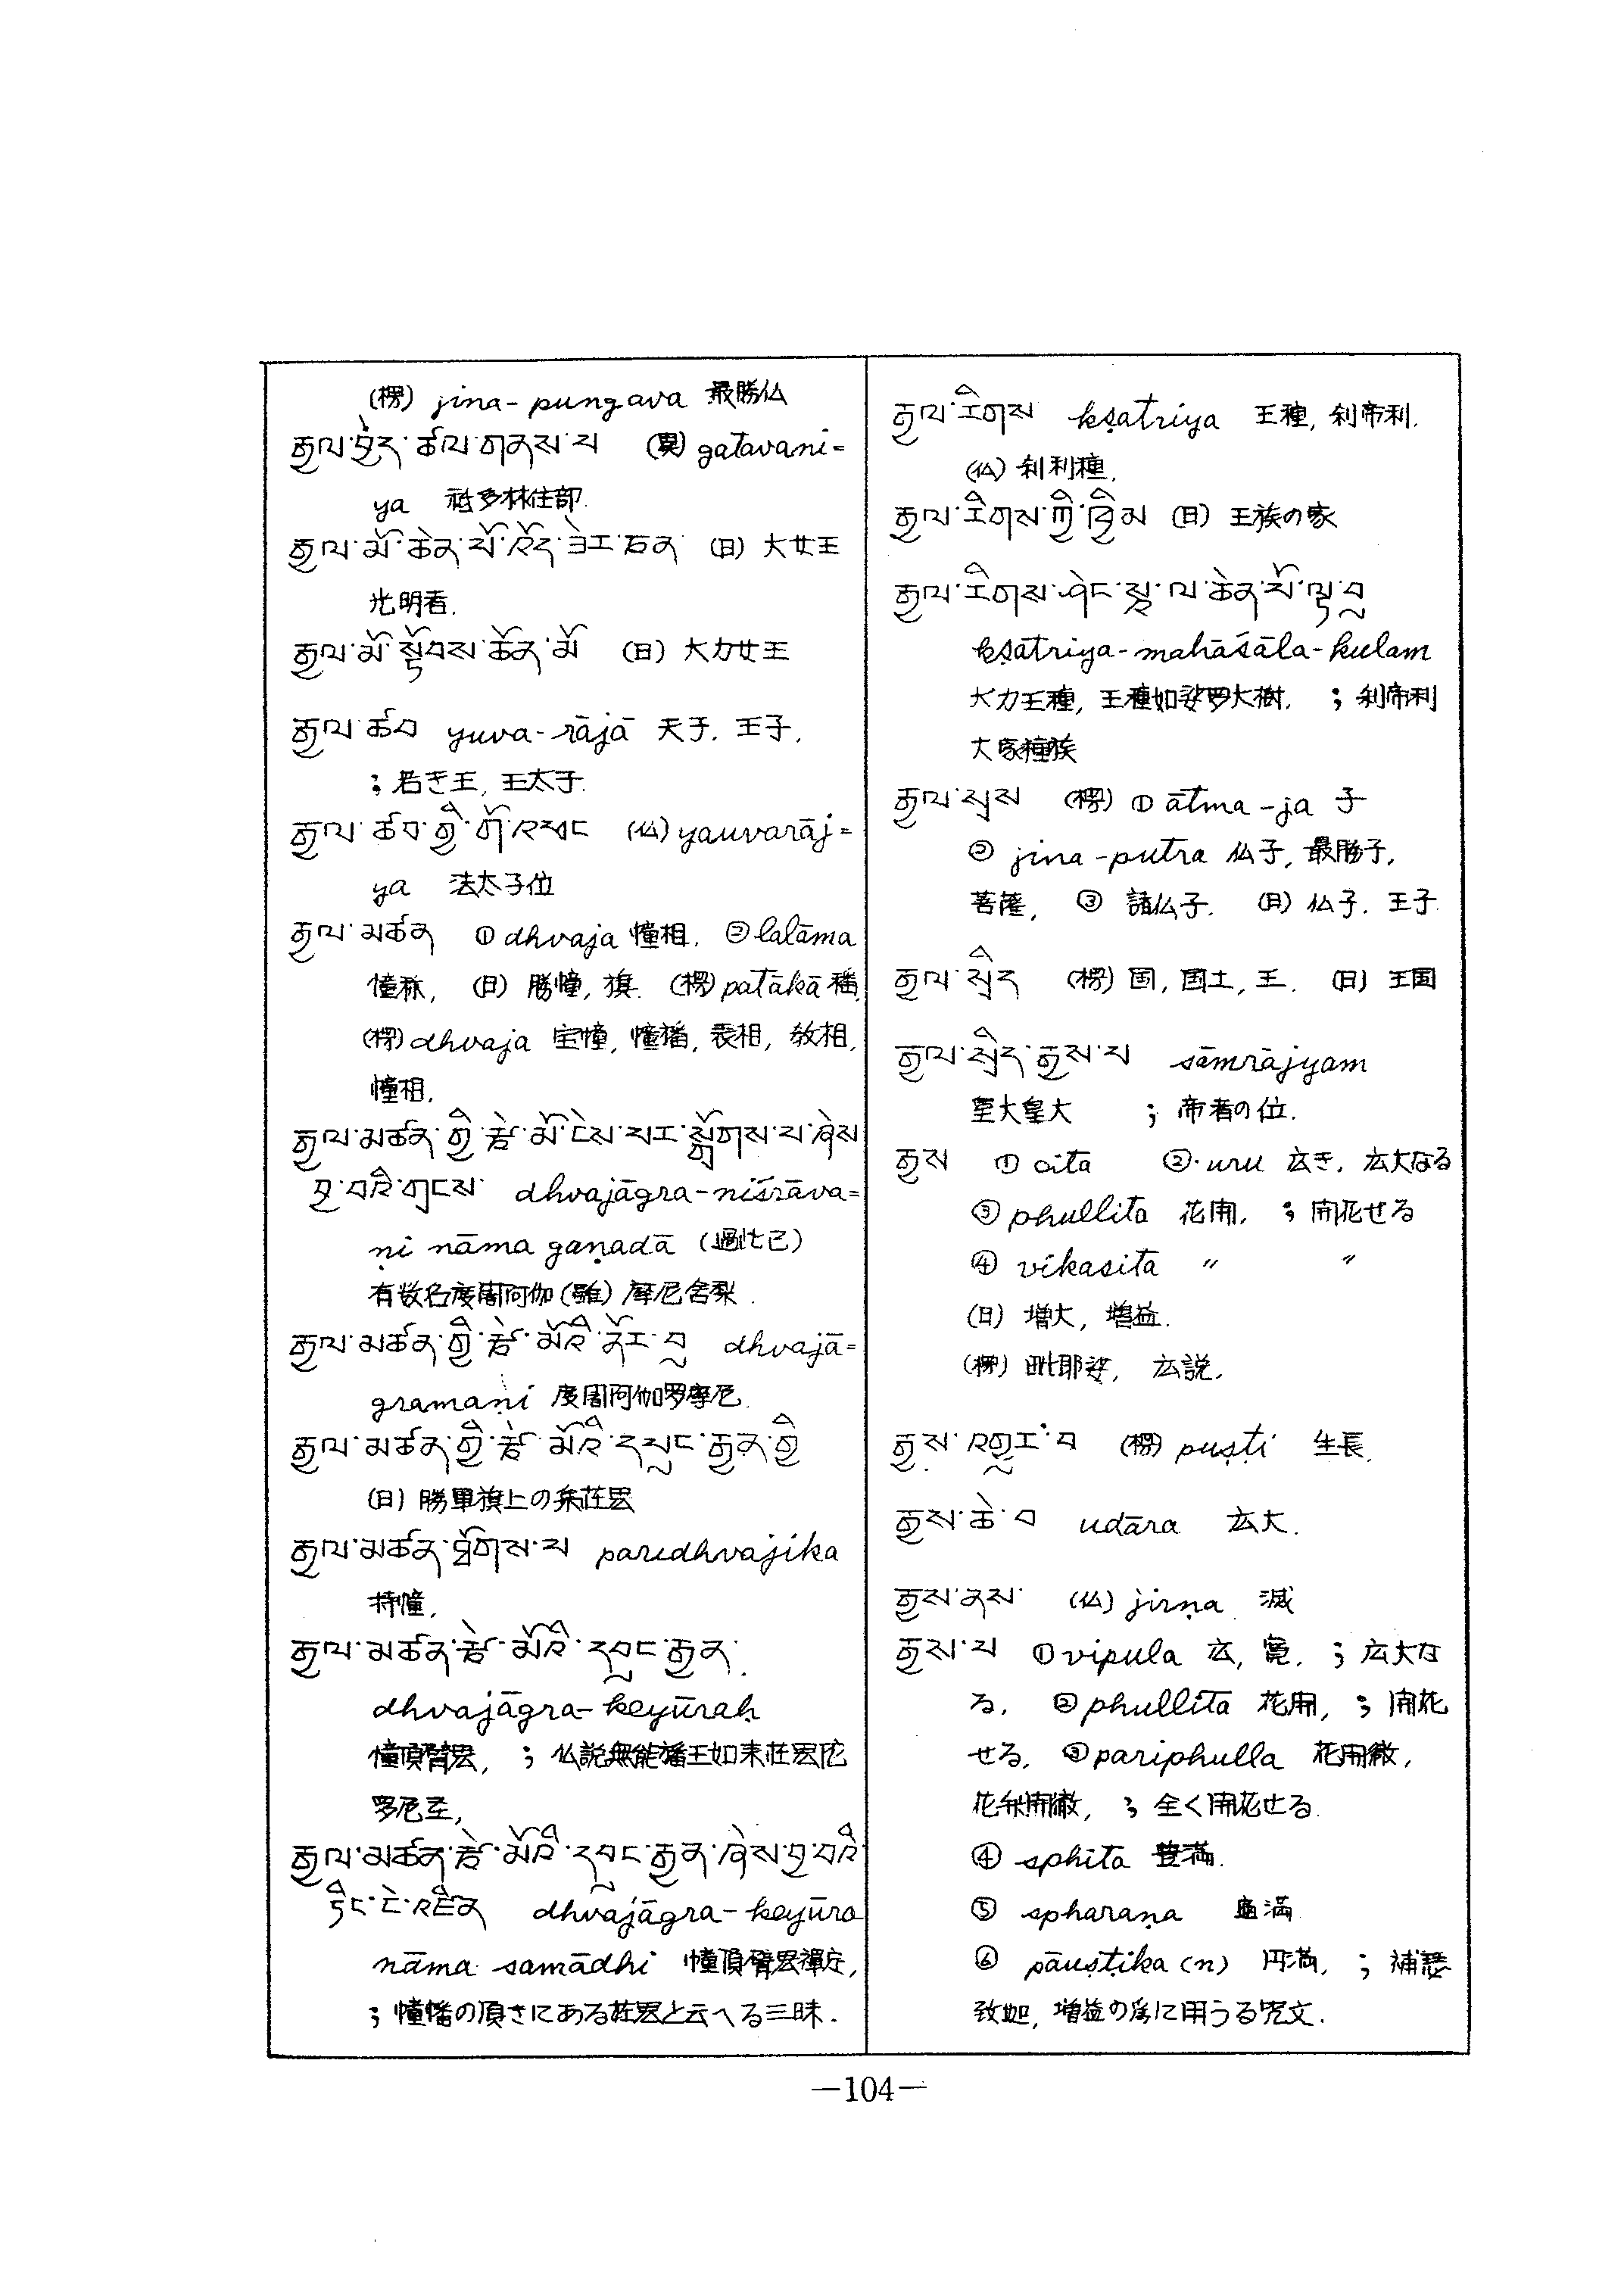 (楞) jina-pungava 最勝仏
རྒྱལ་བྱེད་ཚལ་གནས་པ (異) gatavani=
ya 祇多林住部.
རྒྱལ་མོ་ཆེན་པོ་འོད་ཟེར་ཅན (日) 大女王
光明者.
རྒྱལ་མོ་སྟོབས་ཆེན་མོ (日) 大力女王
རྒྱལ་ཚབ yuva-rājā 天子. 王子,
; 若き王, 王太子.
རྒྱལ་ཚབ་ཀྱི་གོ་འཕང (仏) yauvarāj=
ya 法太子位
རྒྱལ་མཚན ① dhvaja 幢相. ② lalāma
幢称, (日) 勝幢, 旗. (楞) patākā 旛,
(楞) dhvaja 宝幢, 幢旛, 表相, 教相,
幢相.
རྒྱལ་མཚན་གྱི་རྩེ་མོ་ངེས་པར་སྒྲོགས་པ་ཞེས
བྱ་བའི་གཟུངས dhvajāgra-niśrāva=
ṇi nāma gaṇadā (過比已)
有数名度闍阿伽(雖)摩尼舍梨.
རྒྱལ་མཚན་གྱི་རྩེ་མོའི་ནོར་བུ dhvajā=
gramaṇi 度闍阿伽罗摩尼.
རྒྱལ་མཚན་གྱི་རྩེ་མོའི་དཔུང་རྒྱན་གྱི
(日) 勝軍旗上の
རྒྱལ་མཚན་ཐོགས་པ paredhvajika
持幢.
རྒྱལ་མཚན་རྩེ་མོའི་དཔུང་རྒྱན་
dhvajāgra-keyūraḥ
幢頂臂嚴, ; 仏説無能旛王如来荘嚴陀
罗尼圣,
རྒྱལ་མཚན་རྩེ་མོའི་དཔུང་རྒྱན་ཞེས་བྱ་བའི
ཏིང་ངེ་འཛིན dhvajāgra-keyūra
nāma samādhi 幢頂臂嚴禪定,
; 幢旛の頂きにある荘嚴と云へる三昧.
རྒྱལ་རིགས kṣatriya 王種, 刹帝利.
(仏) 刹利種.
རྒྱལ་རིགས་ཀྱི་ཁྱིམ (日) 王族の家
རྒྱལ་རིགས་ཤིང་སྰ་ལ་ཆེན་པོ་ལྟ་བུ
kṣatriya-mahāśāla-kulam
大力王種, 王種如娑罗大樹. ; 刹帝利
大家種族
རྒྱལ་སྲས (楞) ① ātma-ja 子
② jina-putra 仏子, 最勝子,
菩薩, ③ 諸仏子. (日) 仏子. 王子.
རྒྱལ་སྲིད (楞) 国, 国土, 王. (日) 王国
རྒྱལ་སྲིད་རྒྱས་པ sāmrājyam
皇大皇大 ; 帝者の位.
རྒྱས ① cita ② uru 広き, 広大なる
③ phullita 花開. ; 開花せる
④ vikasita 〃 〃
(日) 増大, 増益.
(楞) 毗耶娑, 広説.
རྒྱས་འགྱུར་བ (楞) puṣṭi 生長.
རྒྱས་ཆེ་བ udāra 広大.
རྒྱས་ནས་ (仏) jirṇa 滅
རྒྱས་པ ① vipula 広, 寛. ; 広大な
る. ② phullita 花開, ; 開花
せる. ③ pariphulla 花開徹,
花弁開徹, ; 全く開花せる.
④ sphita 豊満.
⑤ spharaṇa 満
⑥ pauṣṭika (n) 円満, ; 補瑟
致迦, 増益の為に用うる咒文.
—104—